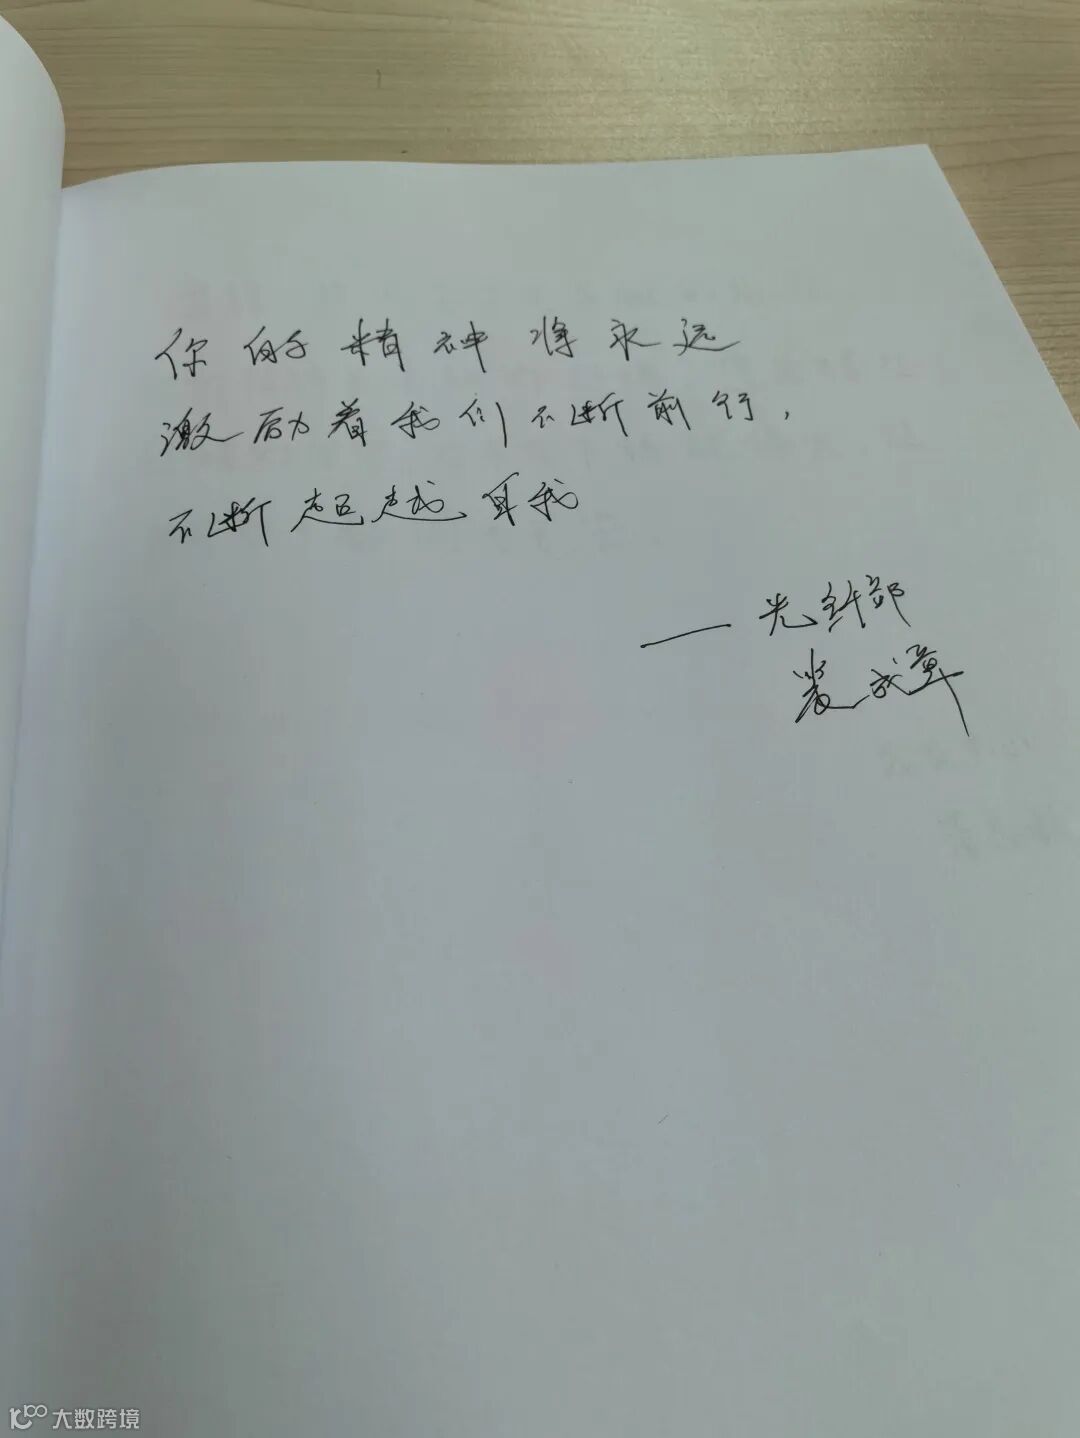 你的精神将永远
激励着我们不断前行，
不断超越自我
——光纤部
成章
大数跨境